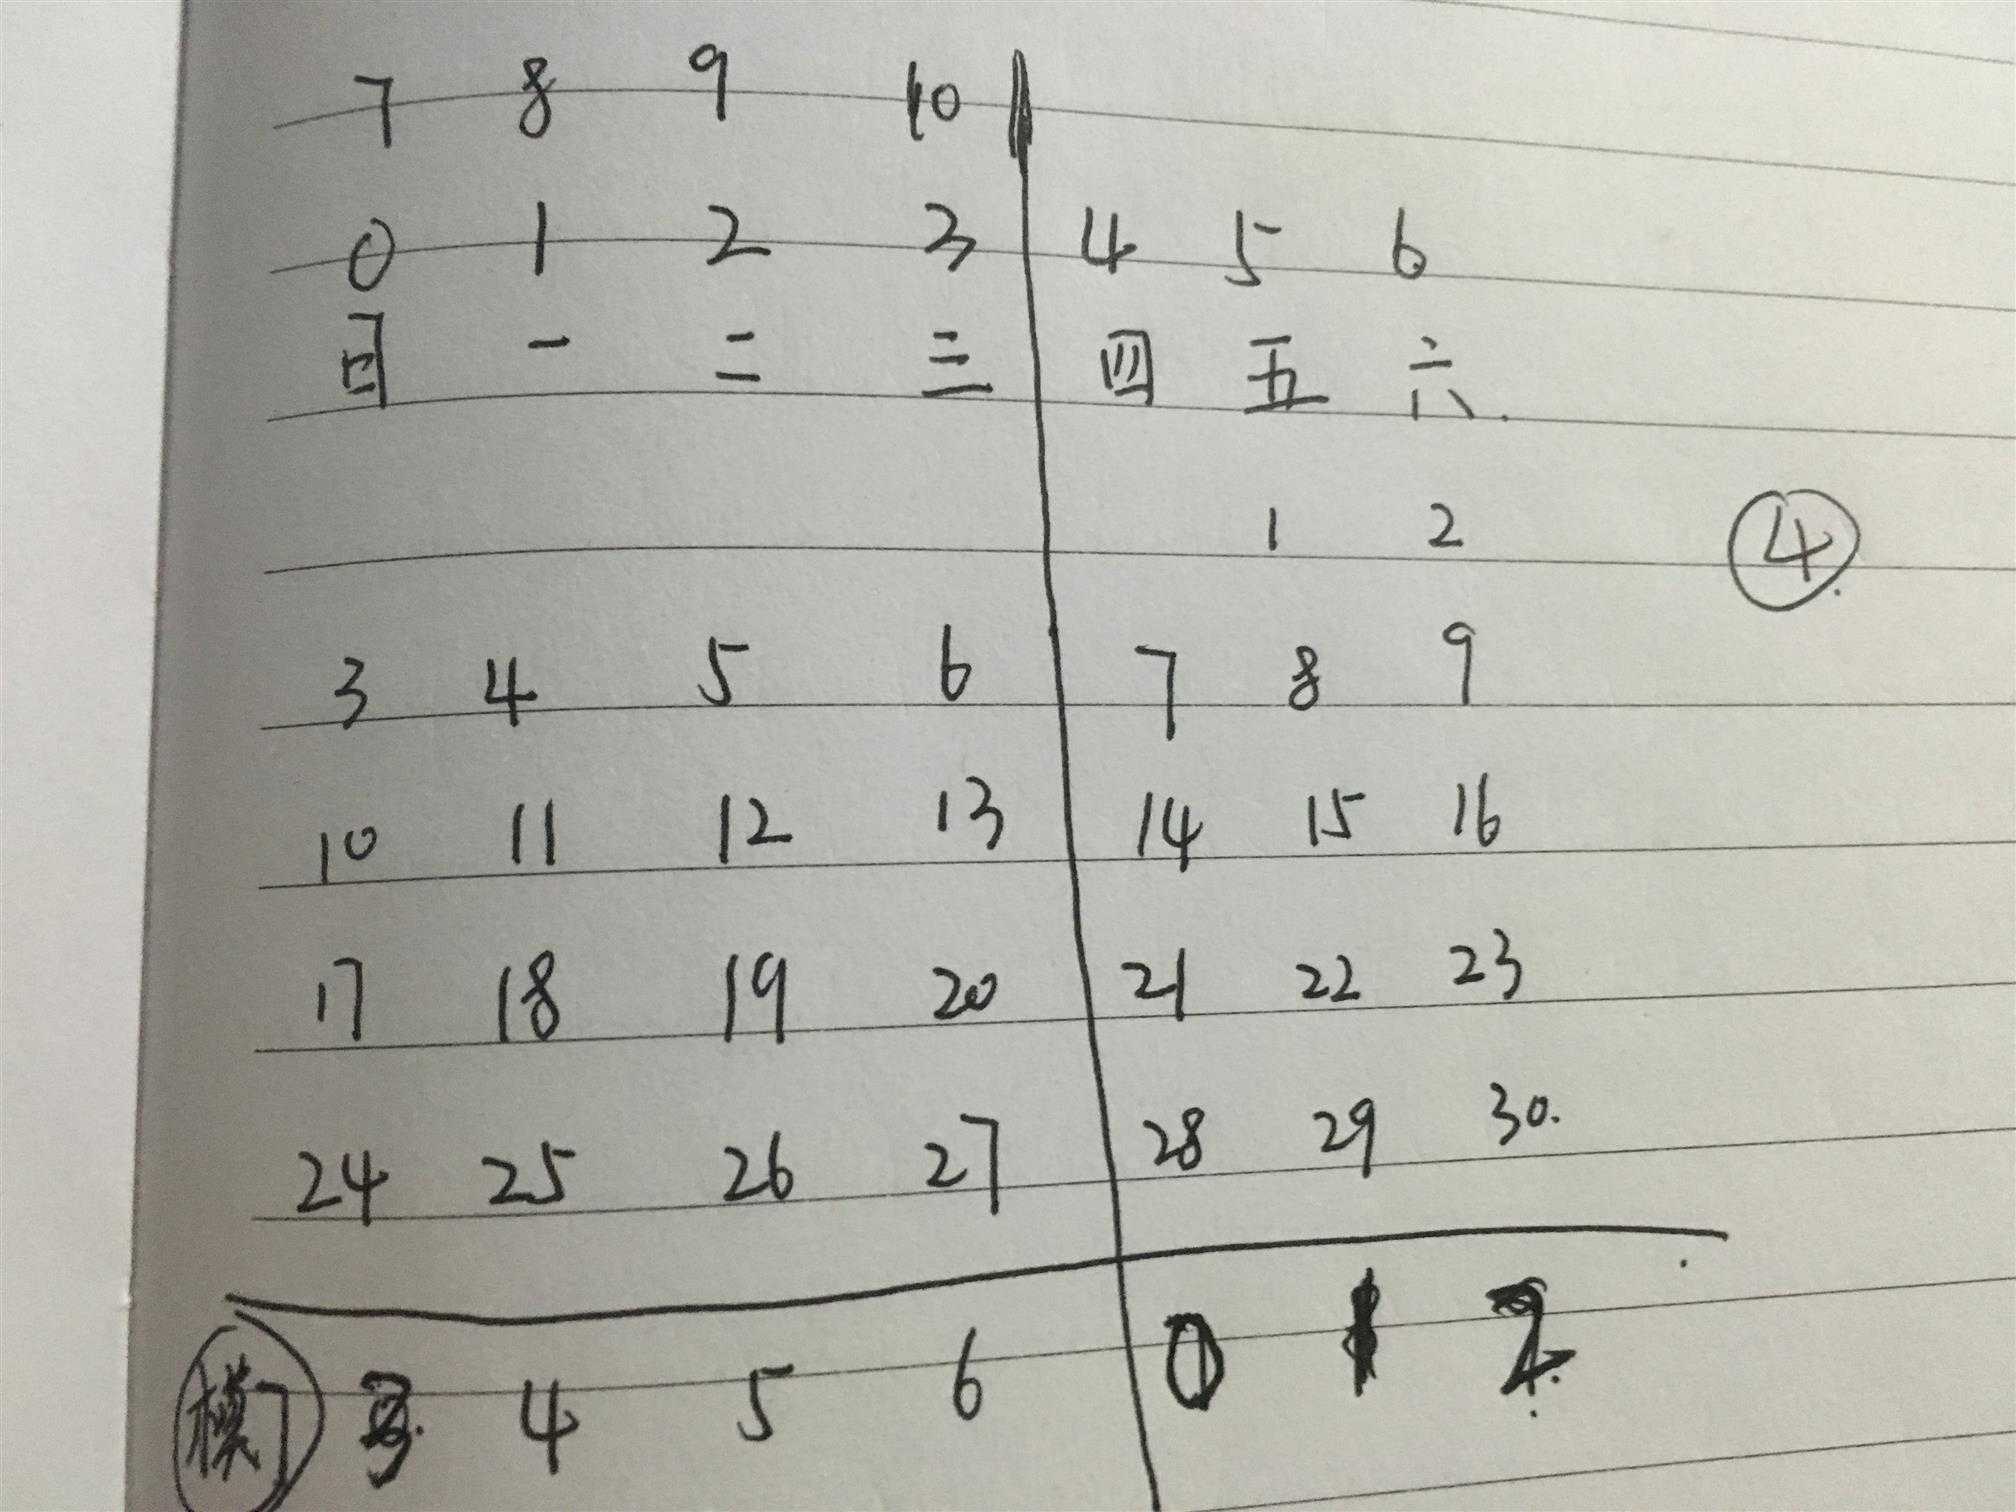 7 8 9 10
0 1 2 3 4 5 6
日 一 二 三 四 五 六
1 2 4
3 4 5 6 7 8 9
10 11 12 13 14 15 16
17 18 19 20 21 22 23
24 25 26 27 28 29 30
模7 3 4 5 6 0 1 2